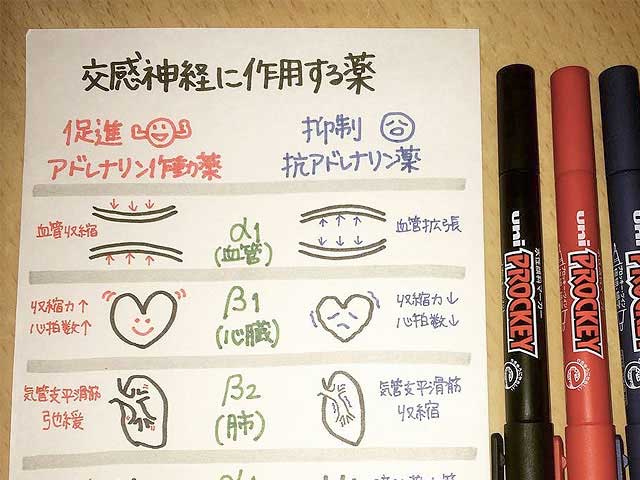 交感神経に作用する薬
促進
抑制
アドレナリン作動薬
抗アドレナリン薬
血管収縮
α1
(血管)
血管拡張
収縮力↑
心拍数↑
β1
(心臓)
収縮力↓
心拍数↓
気管支平滑筋
弛緩
β2
(肺)
気管支平滑筋
収縮
uni PROCKEY
水性顔料マーカー
uni PROCKEY
uni PROCKEY